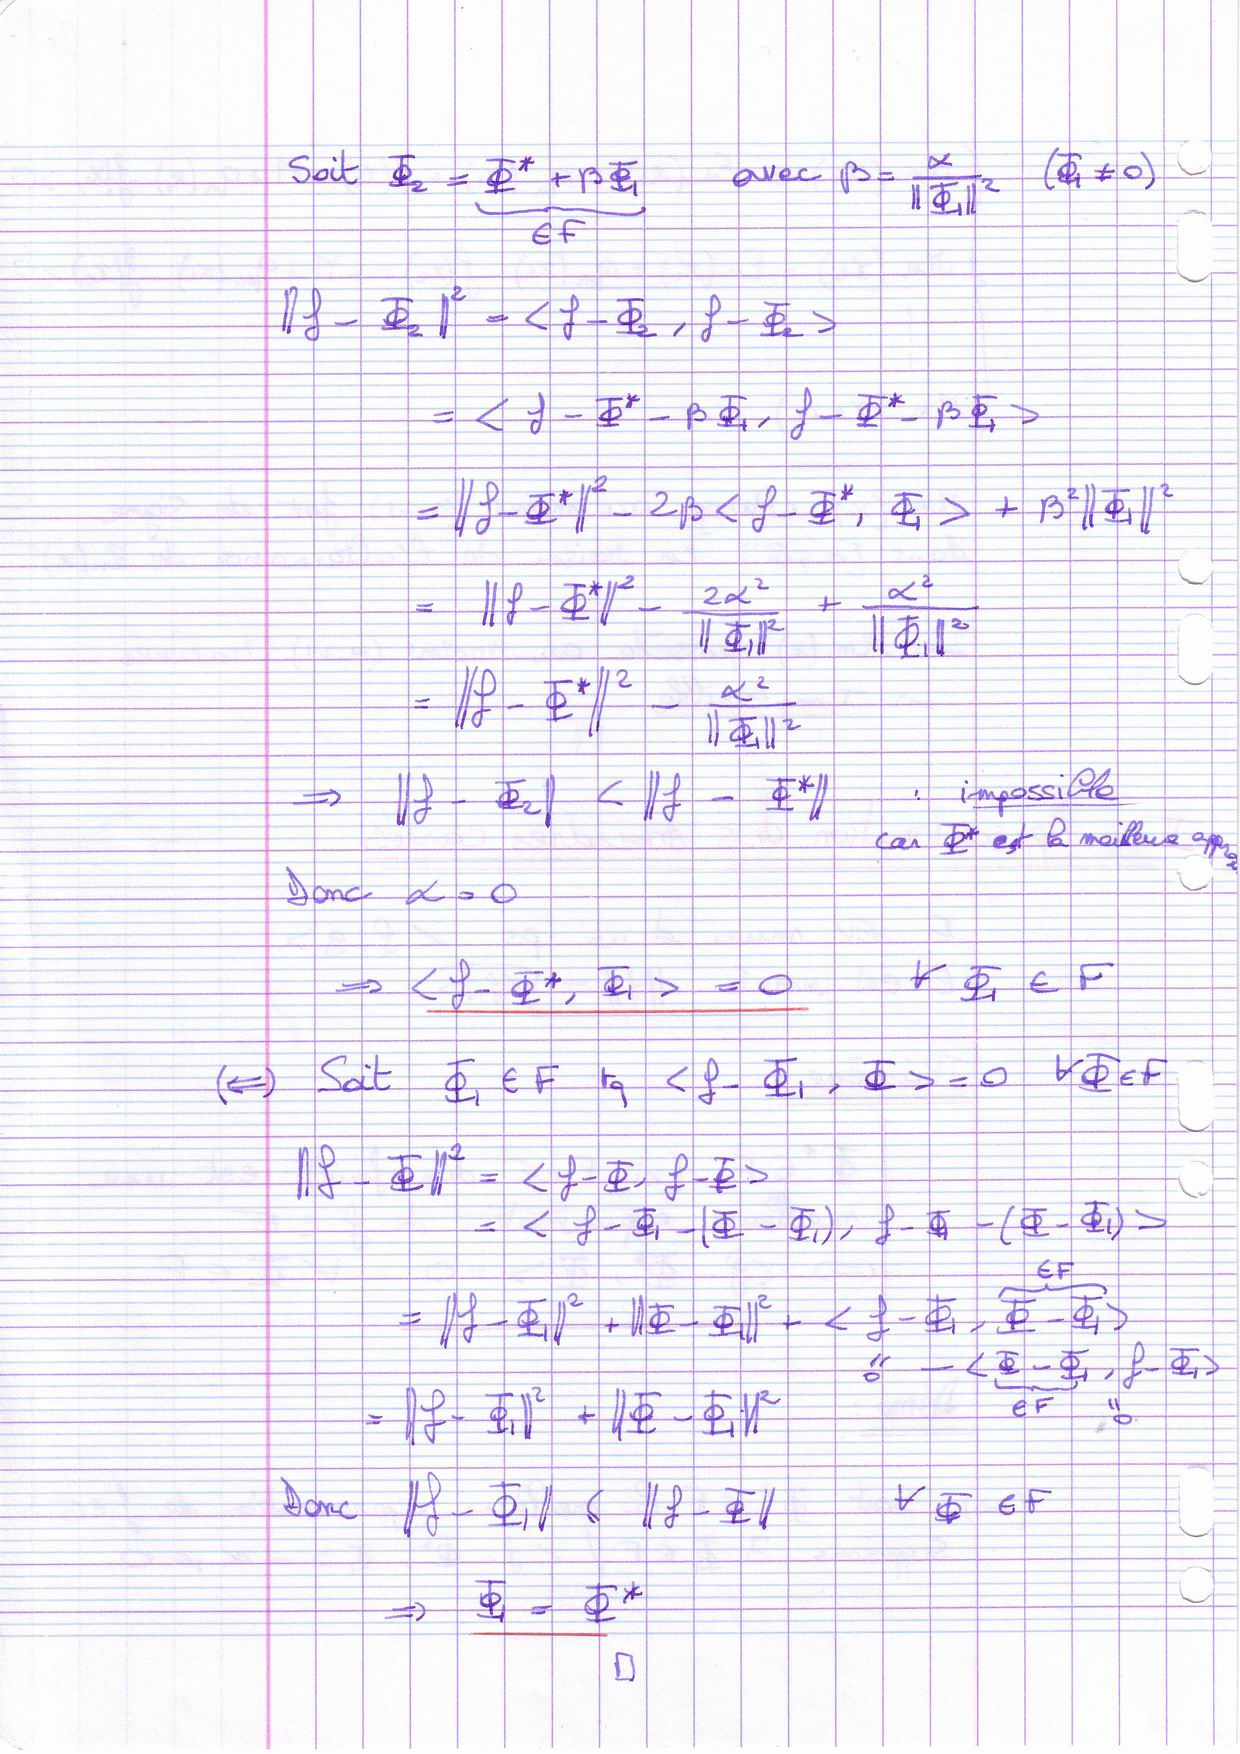 Soit Φ₂ = Φ* + βΦ₁ avec β = α / ‖Φ₁‖² (Φ₁ ≠ 0)
∈ F
‖f − Φ₂‖² = < f − Φ₂ , f − Φ₂ >
= < f − Φ* − βΦ₁ , f − Φ* − βΦ₁ >
= ‖f − Φ*‖² − 2β < f − Φ*, Φ₁ > + β²‖Φ₁‖²
= ‖f − Φ*‖² − 2α² / ‖Φ₁‖² + α² / ‖Φ₁‖²
= ‖f − Φ*‖² − α² / ‖Φ₁‖²
⇒ ‖f − Φ₂‖ < ‖f − Φ*‖ : impossible
car Φ* est la meilleure approx
Donc α = 0
⇒ < f − Φ*, Φ₁ > = 0 ∀ Φ₁ ∈ F
(⇐) Soit Φ₁ ∈ F tq < f − Φ₁ , Φ > = 0 ∀ Φ ∈ F
‖f − Φ‖² = < f − Φ, f − Φ >
= < f − Φ₁ − (Φ − Φ₁), f − Φ₁ − (Φ − Φ₁) >
∈ F
= ‖f − Φ₁‖² + ‖Φ − Φ₁‖² + < f − Φ₁, Φ − Φ₁ >
= 0 − < Φ − Φ₁ , f − Φ₁ >
∈ F = 0
= ‖f − Φ₁‖² + ‖Φ − Φ₁‖²
Donc ‖f − Φ₁‖ < ‖f − Φ‖ ∀ Φ ∈ F
⇒ Φ₁ = Φ*
□